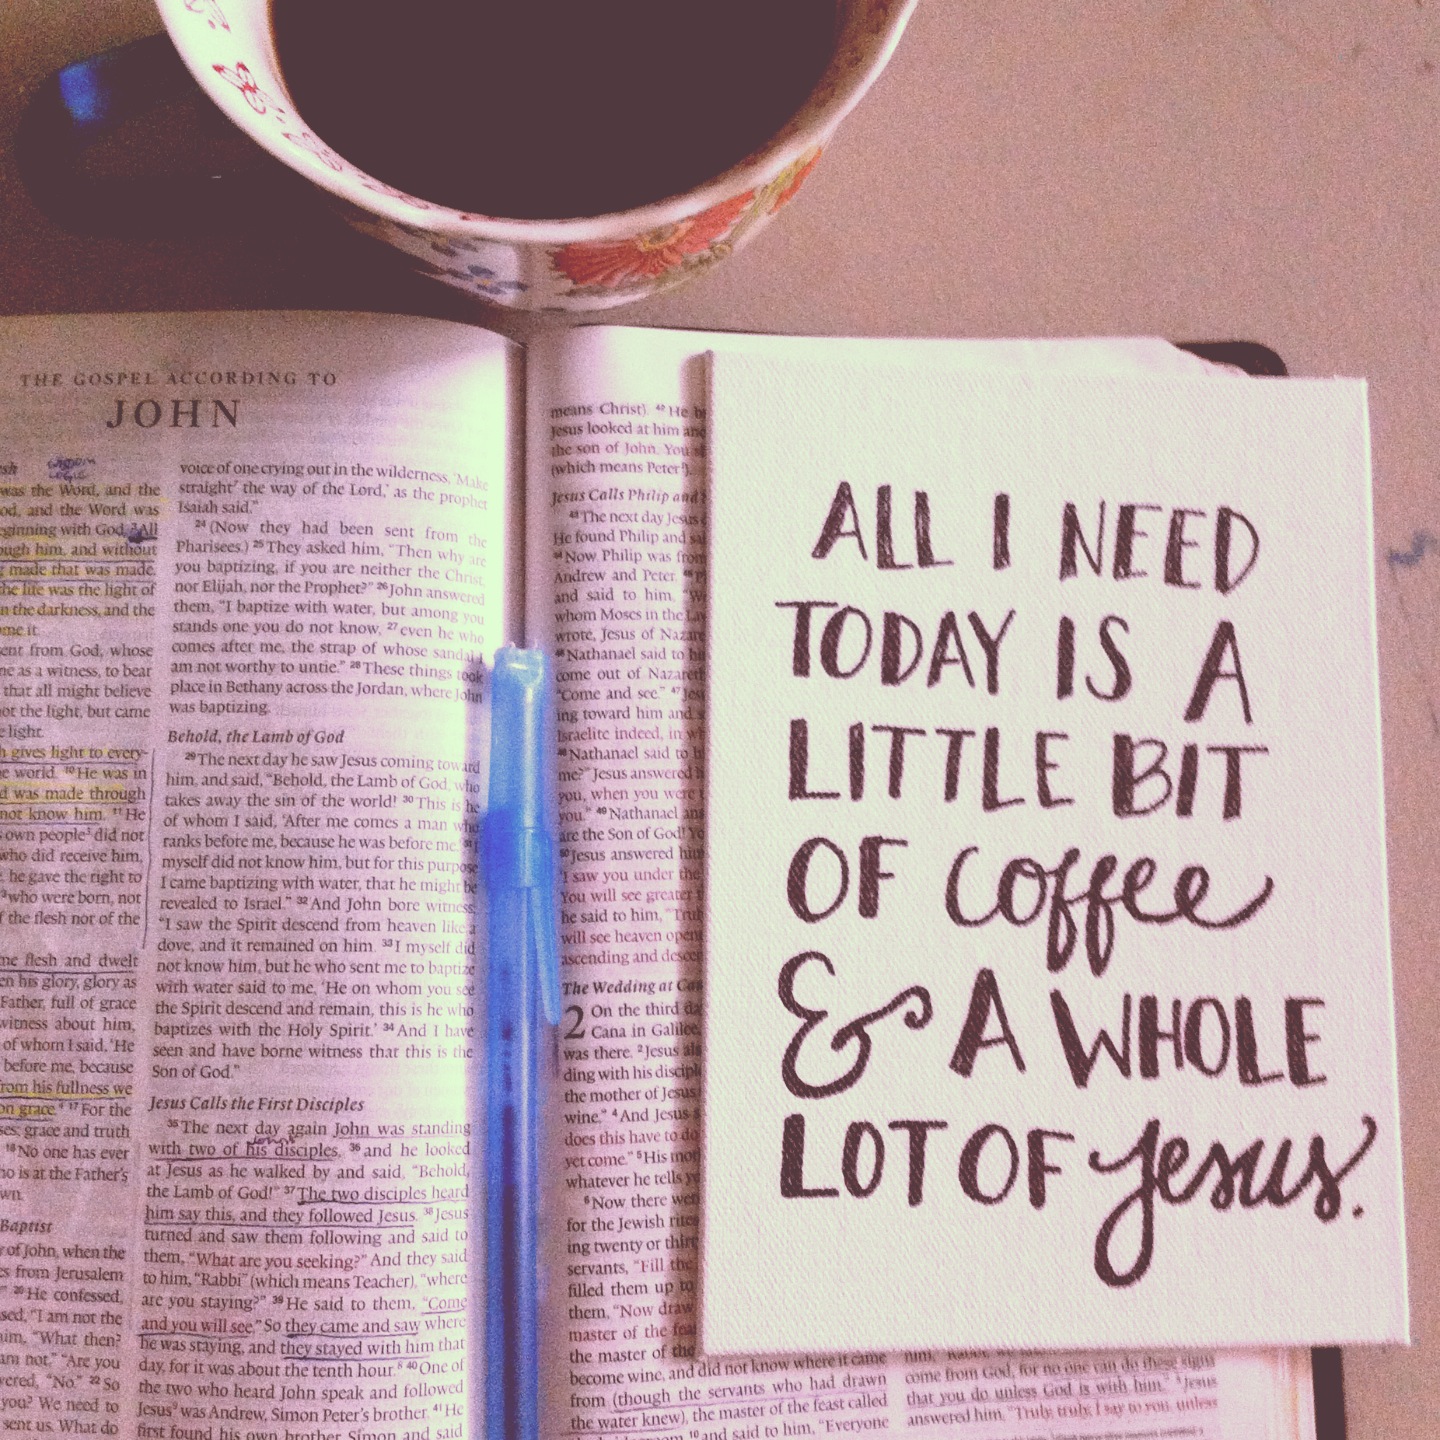 THE GOSPEL ACCORDING TO
JOHN
was the Word, and the
and the Word was
with God. All
him, and without
made that was made.
the light of
in the darkness, and the
it.
from God, whose
as a witness, to bear
that all might believe
the light, but came
light.
gives light to every-
world. 10 He was in
was made through
not know him. 11 He
own people did not
who did receive him,
he gave the right to
who were born, not
the flesh nor of the
flesh and dwelt
his glory, glory as
Father, full of grace
witness about him,
of whom I said, 'He
before me, because
from his fullness we
grace. 17 For the
grace and truth
18 No one has ever
is at the Father's
Baptist
of John, when the
from Jerusalem
20 He confessed,
"I am not the
"What then?
not." "Are you
"No." 22 So
you? We need to
sent us. What do
voice of one crying out in the wilderness, 'Make
straight the way of the Lord,' as the prophet
Isaiah said."
24 (Now they had been sent from the
Pharisees.) 25 They asked him, "Then why are
you baptizing, if you are neither the Christ,
nor Elijah, nor the Prophet?" 26 John answered
them, "I baptize with water, but among you
stands one you do not know, 27 even he who
comes after me, the strap of whose sandal I
am not worthy to untie." 28 These things took
place in Bethany across the Jordan, where John
was baptizing.
Behold, the Lamb of God
29 The next day he saw Jesus coming toward
him, and said, "Behold, the Lamb of God, who
takes away the sin of the world! 30 This is he
of whom I said, 'After me comes a man who
ranks before me, because he was before me.' 31 I
myself did not know him, but for this purpose
I came baptizing with water, that he might be
revealed to Israel." 32 And John bore witness:
"I saw the Spirit descend from heaven like a
dove, and it remained on him. 33 I myself did
not know him, but he who sent me to baptize
with water said to me, 'He on whom you see
the Spirit descend and remain, this is he who
baptizes with the Holy Spirit.' 34 And I have
seen and have borne witness that this is the
Son of God."
Jesus Calls the First Disciples
35 The next day again John was standing
with two of his disciples, 36 and he looked
at Jesus as he walked by and said, "Behold,
the Lamb of God!" 37 The two disciples heard
him say this, and they followed Jesus. 38 Jesus
turned and saw them following and said to
them, "What are you seeking?" And they said
to him, "Rabbi" (which means Teacher), "where
are you staying?" 39 He said to them, "Come
and you will see." So they came and saw where
he was staying, and they stayed with him that
day, for it was about the tenth hour. 40 One of
the two who heard John speak and followed
Jesus was Andrew, Simon Peter's brother. 41 He
first found his own brother Simon and said
means Christ). 42 He
Jesus looked at him and
the son of John. You
(which means Peter).
Jesus Calls Philip and
43 The next day Jesus
He found Philip and
44 Now Philip was from
Andrew and Peter.
and said to him,
whom Moses in the
wrote, Jesus of
Nathanael said to
come out of
"Come and see." 47
ing toward him and
Israelite indeed, in
48 Nathanael said to
me?" Jesus answered
you, when you were
you." 49 Nathanael
are the Son of God!
50 Jesus answered him,
'I saw you under the
You will see greater
he said to him,
will see heaven
ascending and
The Wedding at
2 On the third
Cana in Galilee,
was there. 2 Jesus
ding with his
the mother of Jesus
wine." 4 And Jesus
does this have to do
yet come." 5 His
whatever he tells
6 Now there were
for the Jewish
ing twenty or
servants, "Fill the
filled them up to
them, "Now draw
master of the
the master of the
become wine, and did not know where it came
from (though the servants who had drawn
the water knew), the master of the feast called
10 and said to him, "Everyone
come from God, for no one can do these signs
that you do unless God is with him." 3 Jesus
answered him, "Truly, truly, I say to you, unless
ALL I NEED
TODAY IS A
LITTLE BIT
OF coffee
& A WHOLE
LOT OF Jesus.